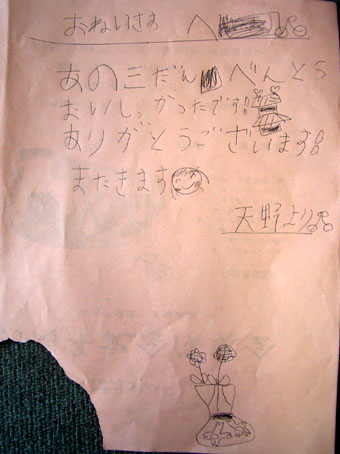 おねいさま へ
あの三だんべんとう
おいしっかったです!
ありがとうございます!
またきます
天野より